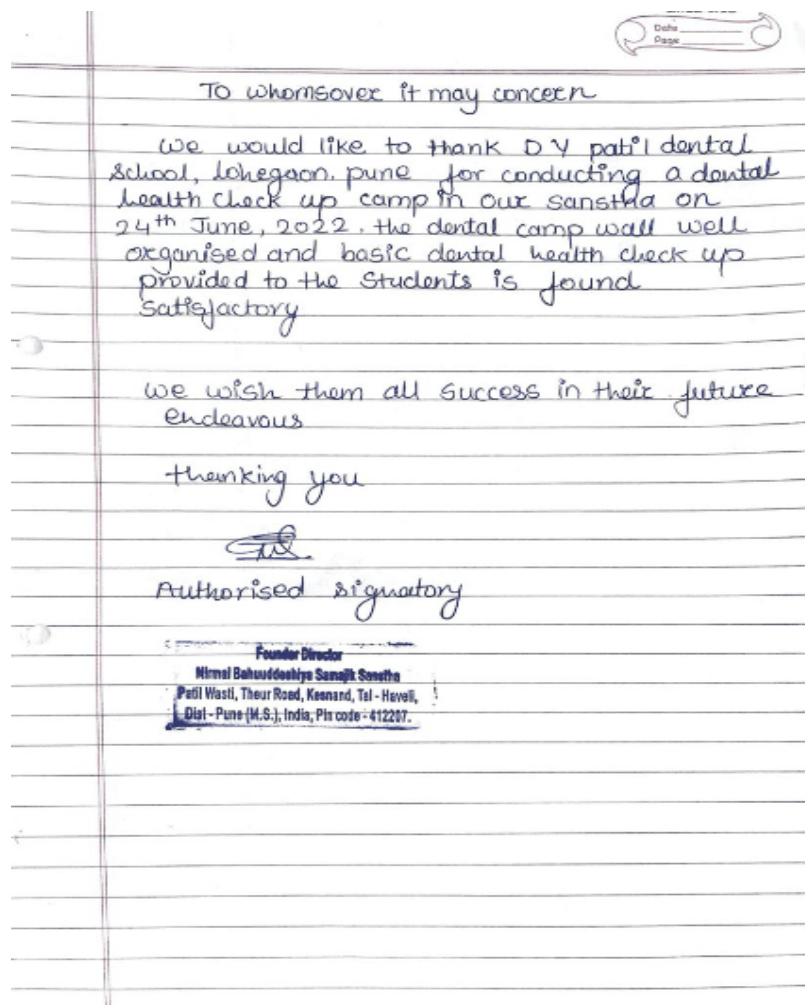 Date
Page
To whomsover it may concern
we would like to thank D Y patil dental
School, Lohegaon. pune for conducting a dental
health check up camp in our sanstha on
24th June, 2022. the dental camp wall well
organised and basic dental health check up
provided to the Students is found
satisfactory
we wish them all success in their future
endeavous
thanking you
Authorised signatory
Founder Director
Nirmal Bahuuddeshiya Samajik Sanstha
Patil Wasti, Theur Road, Kesnand, Tal - Haveli,
Dist - Pune (M.S.), India, Pin code - 412207.